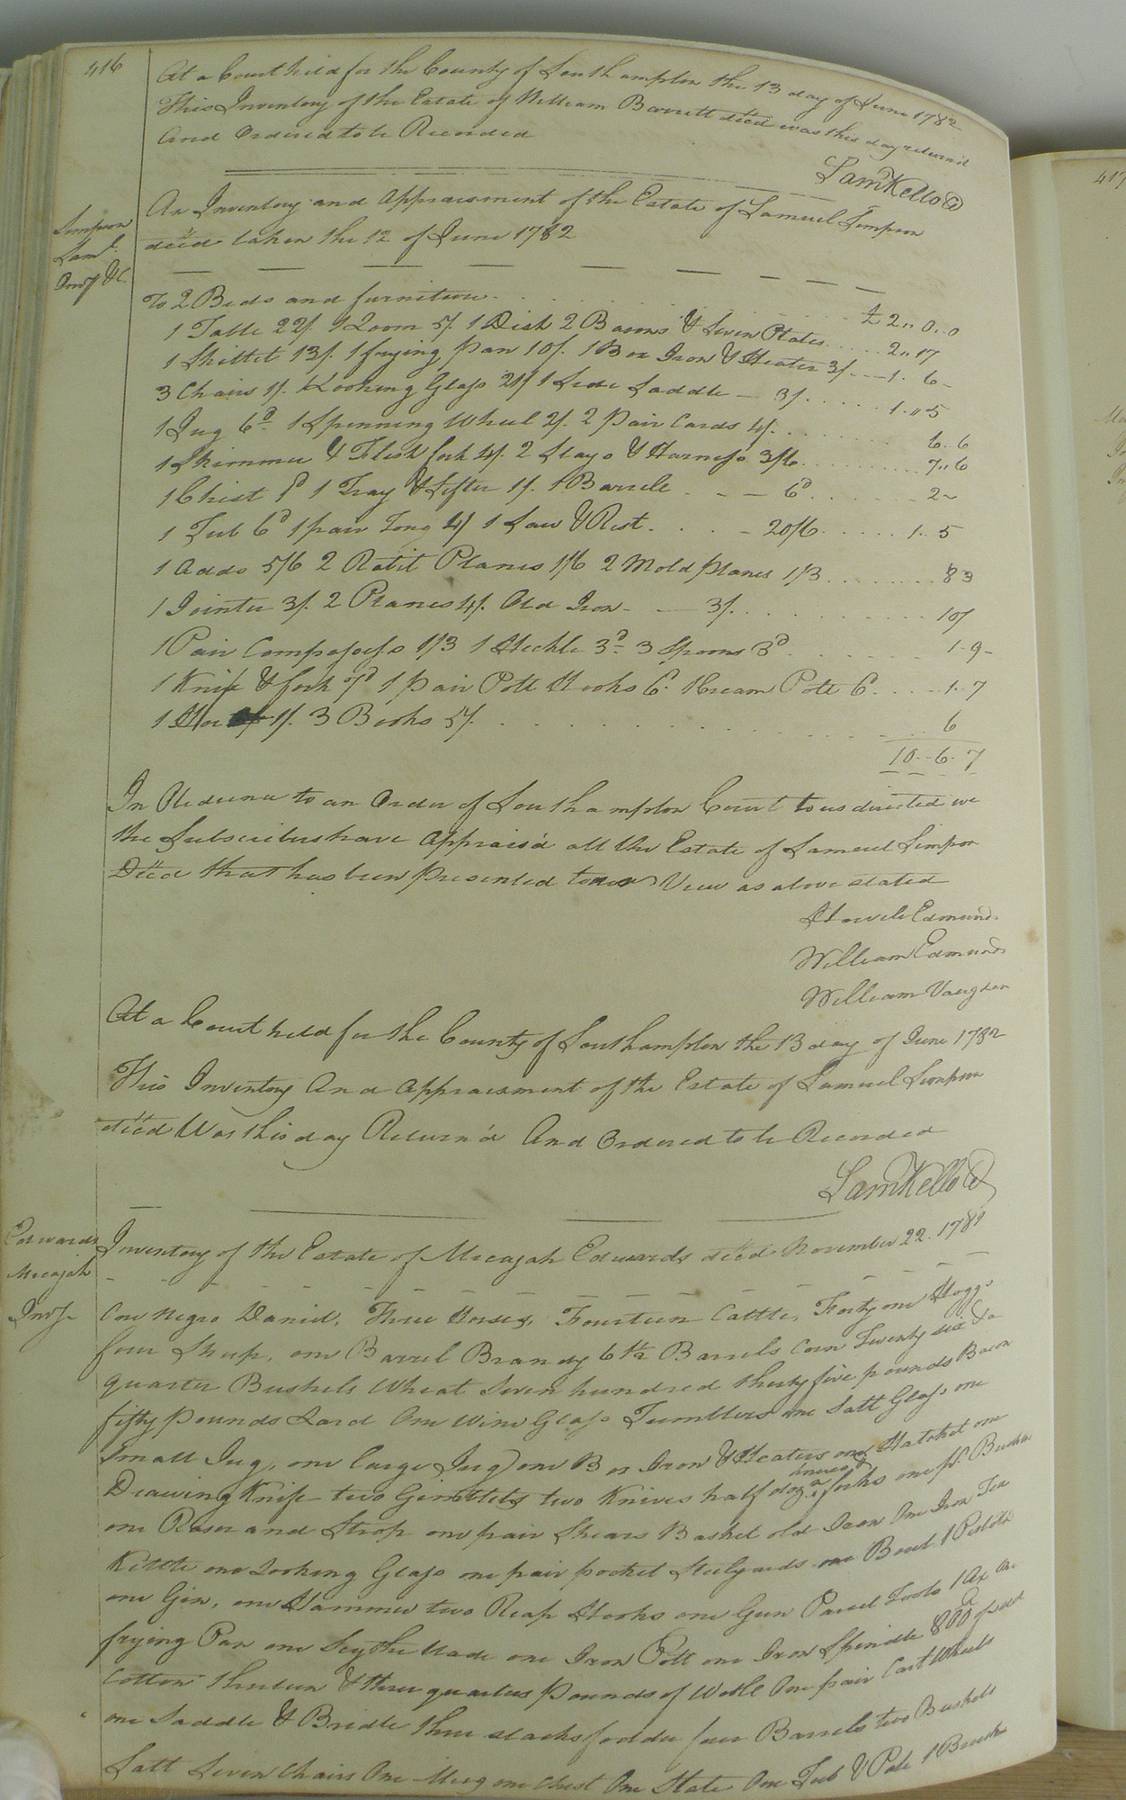 416
At a Court held for the County of Southampton the 13 day of June 1782
This Inventory of the Estate of William Barrett deced was this day returned
And Ordered to be Recorded
Saml Kello
An Inventory and Appraisment of the Estate of Samuel Simpson
deced taken the 12 of June 1782
Simpson
Saml
Invy &C.
To 2 Beds and furniture £ 2 .. 0 .. 0
1 Table 22/. 1 Loom 5/. 1 Dish 2 Basons & Seven Plates 2 .. 17
1 Skillet 13/. 1 frying Pan 10/. 1 Box Iron & Heater 3/. 1 . 6
3 Chairs 1/. 1 Looking Glass 21/ 1 Side Saddle 3/ 1 .. 5
1 Jug 6d 1 Spinning Wheel 2/. 2 Pair Cards 4/. 6 . 6
1 Skimmer & Flesh fork 4/. 2 Slays & Harness 3/6 7 .. 6
1 Chist 1 Tray & Sifter 1/. 1 Barrele 6d 2
1 Tub 6d 1 pair Tong 4/ 1 Saw & Rest 20/6 1 .. 5
1 Adds 5/6 2 Rabit Planes 1/6 2 Mold planes 1/3 8 3
1 Jointer 3/. 2 Planes 4/. Old Iron 3/. 10/
1 Pair Compasses 1/3 1 Heckle 3d 3 Spoons 3d 1 . 9
1 Knife & fork 7d 1 pair Pott Hooks 6d. 1 Cream Pott 6d. 1 . 7
1 Hoe 1/. 3 Books 5/. 6
10 . 6 . 7
In Obediance to an Order of Southampton Court to us directed we
the Subscribers have Appraisd all the Estate of Samuel Simpson
Deced that has been Presented to our View as above stated
Howele Edmunds
William Edmunds
William Vaughan
At a Court held for the County of Southampton the 13 day of June 1782
This Inventory And Appraisment of the Estate of Samuel Simpson
deced Was this day Return'd And Ordered to be Recorded
Saml Kello
Edwards
Micajah
Invy
Inventory of the Estate of Micajah Edwards deced November 22. 1781
One Negro Daniel, Three Horses, Fourteen Cattle, Forty one Hoggs
four Sheep, one Barrel Brandy 6 Barrels Corn Twenty six &a
quarter Bushels Wheat Seven hundred thirty five pounds Bacon
fifty Pounds Lard One Wine Glass Tumblers one Salt Glass one
Small Jug, one large Jug one Box Iron & Heaters one Hatchet one
Drawing Knife two Gimblets two Knives half doz forks one pr. Buckles
one Rasor and Strop one pair Shears Basket old Iron One Iron Tea
Kittle one Looking Glass one pair pocket Steelyards one Bowl 1 Pistole
one Gin, one Hammer two Reap Hooks one Gun Parcel Tools 1 Ax One
frying Pan one Scythe blade one Iron Pott one Iron Spindle 800 of seed
Cotton thirteen & three quarters Pounds of Wool One pair Cart Wheels
one Saddle & Bridle three stacks fodder four Barrels two Bushels
Salt Seven Chairs One Mug one Chest One Slate One Tub & Pale 1 Bucket